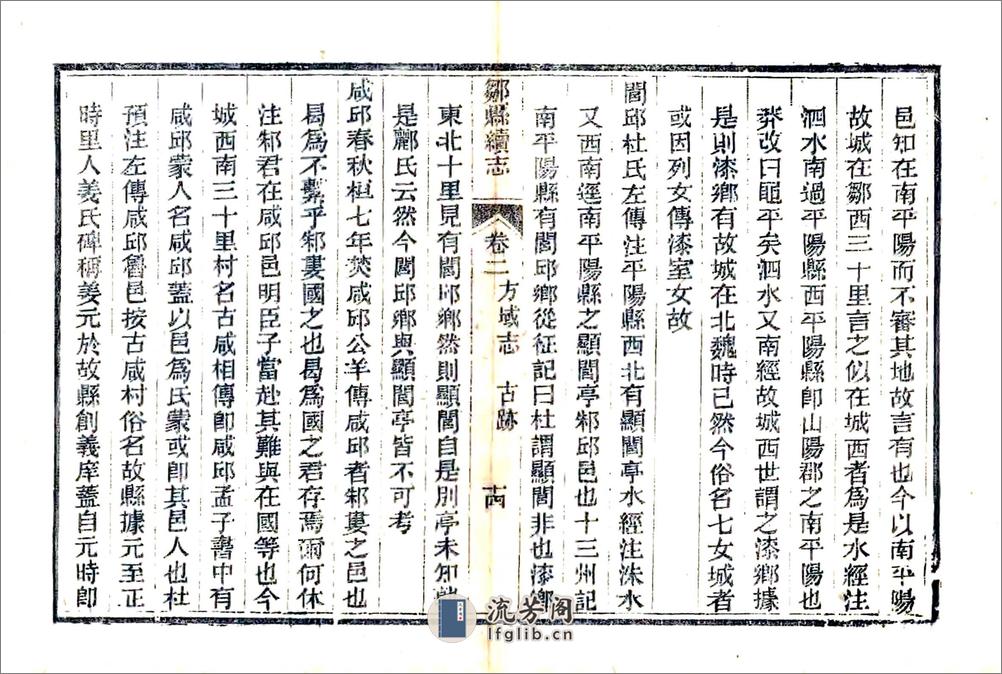 邑知在南平陽而不審其地故言有也今以南平陽
故城在鄒西三十里言之似在城西者爲是水經注
泗水南過平陽縣西平陽縣卽山陽郡之南平陽也
莽改曰黽平矣泗水又南經故城西世謂之漆鄉據
是則漆鄉有故城在北魏時已然今俗名七女城者
或因列女傳漆室女故
閭邱杜氏左傳注平陽縣西北有顯閭亭水經注洙水
又西南逕南平陽縣之顯閭亭邾邱邑也十三州記
南平陽縣有閭邱鄉從征記曰杜謂顯閭非也漆鄉
鄒縣續志 卷二 方域志 古跡 十四
東北十里見有閭邱鄉然則顯閭自是別亭未知孰
是酈氏云然今閭邱鄉與顯閭亭皆不可考
咸邱春秋桓七年焚咸邱公羊傳咸邱者邾婁之邑也
曷爲不繫乎邾婁國之也曷爲國之君存焉爾何休
注邾君在咸邱邑明臣子當赴其難與在國等也今
城西南三十里村名古咸相傳卽咸邱孟子書中有
咸邱蒙人名咸邱蓋以邑爲氏蒙或卽其邑人也杜
預注左傳咸邱魯邑按古咸村俗名故縣據元至正
時里人姜氏碑稱姜元於故縣創義庠蓋自元時卽
流芳阁
lfglib.cn